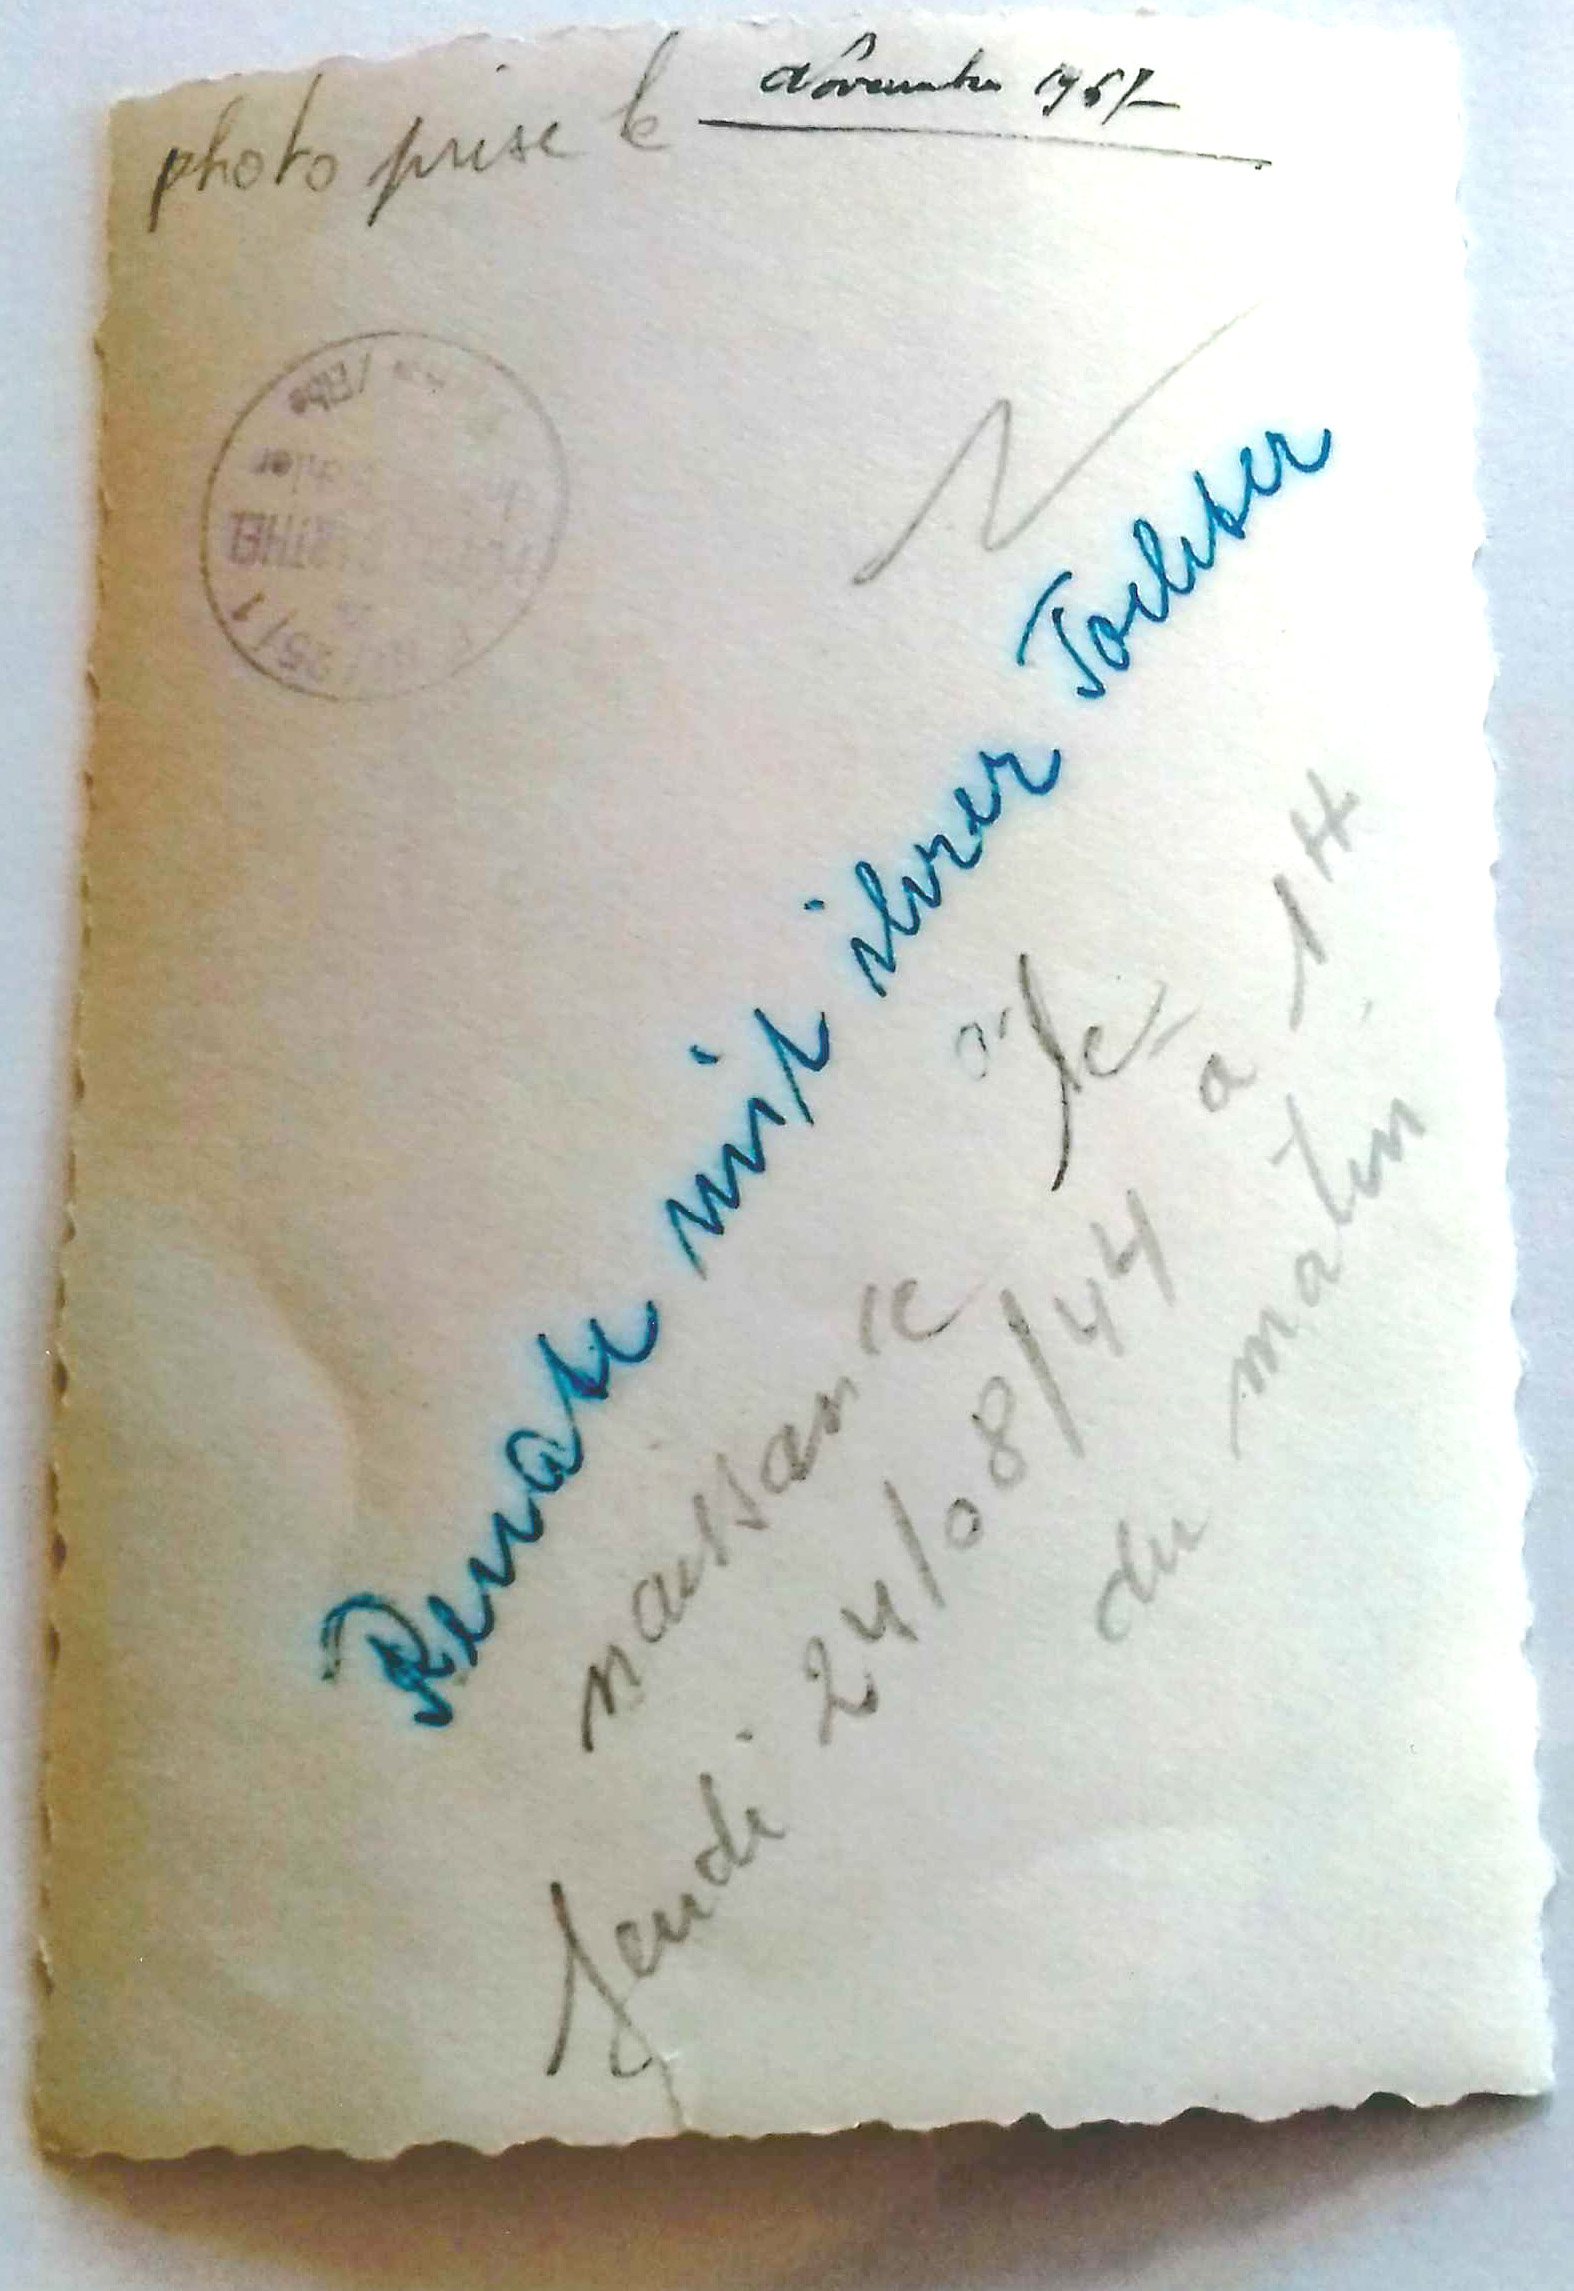 photo prise le Novembre 1967
/Elbe
25/1
Renate mit ihrer Tochter
naissance le
Jeudi 24/08/44 a 1H
du matin